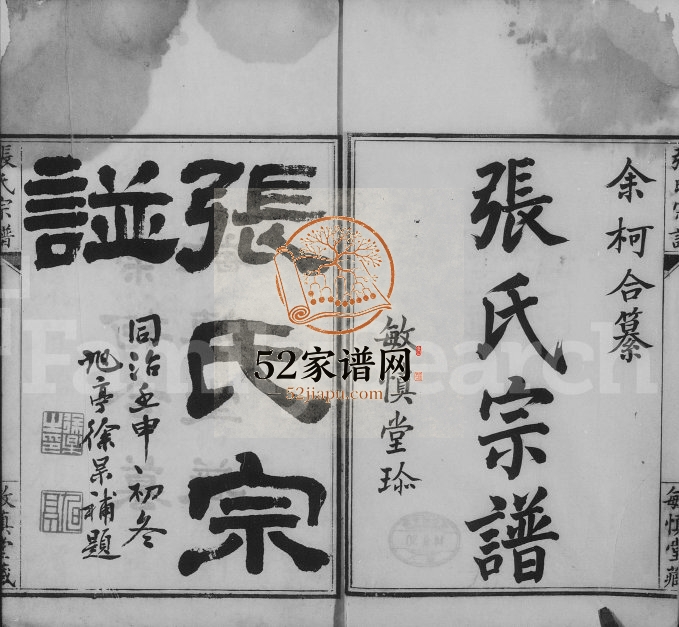 張氏宗譜
余柯合纂
張氏宗譜
敏慎堂珍
敏慎堂藏
張氏宗
諡
同治壬申初冬
旭亭徐杲補題
張氏宗譜
敏慎堂藏
52家谱网
52jiapu.com
FamilySearch